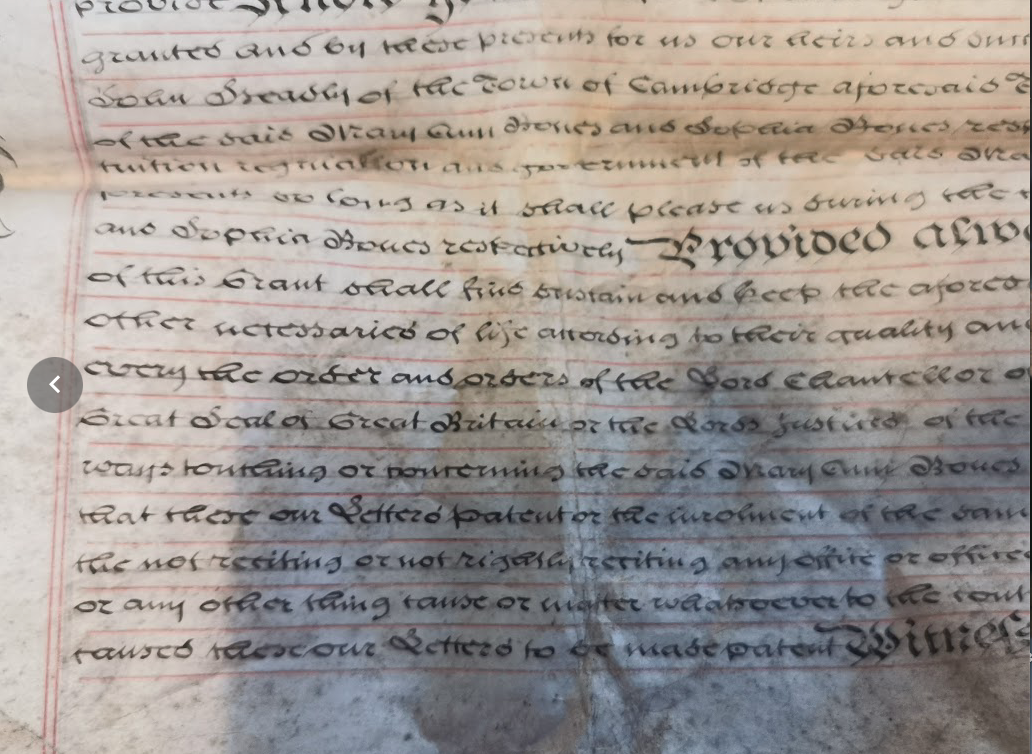 provide Know y
granted and by these presents for us our heirs and
John Headly of the Town of Cambridge aforesaid
of the said Mary Ann Bones and Sophia Bones
tuition regulation and government of the said
presents so long as it shall please us during the
and Sophia Bones respectively Provided alwa
of this Grant shall find sustain and keep the afores
other necessaries of life according to their quality an
every the order and orders of the Lord Chancellor o
Great Seal of Great Britain or the Lords Justices of the
ways touching or concerning the said Mary Ann Bones
that these our Letters patent or the inrolment of the sam
the not reciting or not rightly reciting any office or offices
or any other thing cause or matter whatsoever to the cont
caused these our Letters to be made patent Witness